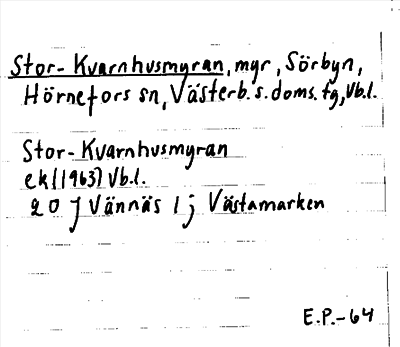 Stor-Kvarnhusmyran, myr, Sörbyn,
Hörnefors sn, Västerb.s.doms.tg, Vb.l.
Stor-Kvarnhusmyran
ek (1963) Vb.l.
20 J Vännäs 1 j Västamarken
E.P.-64